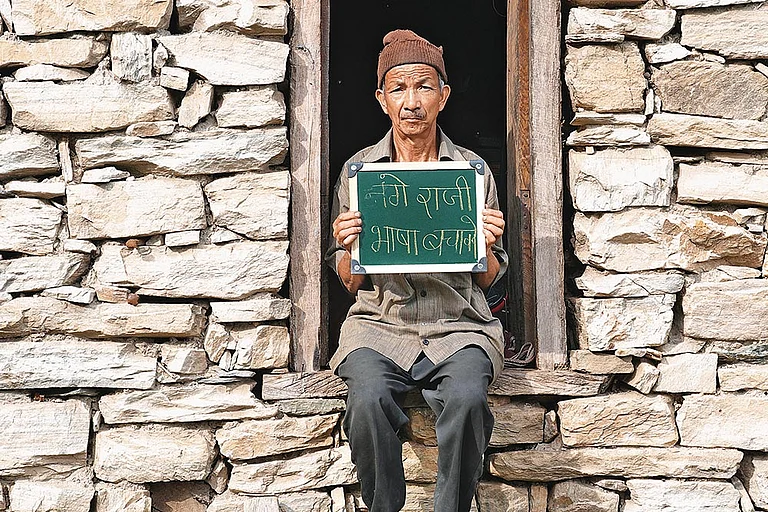 नंगे राजी
भाषा बचाबे